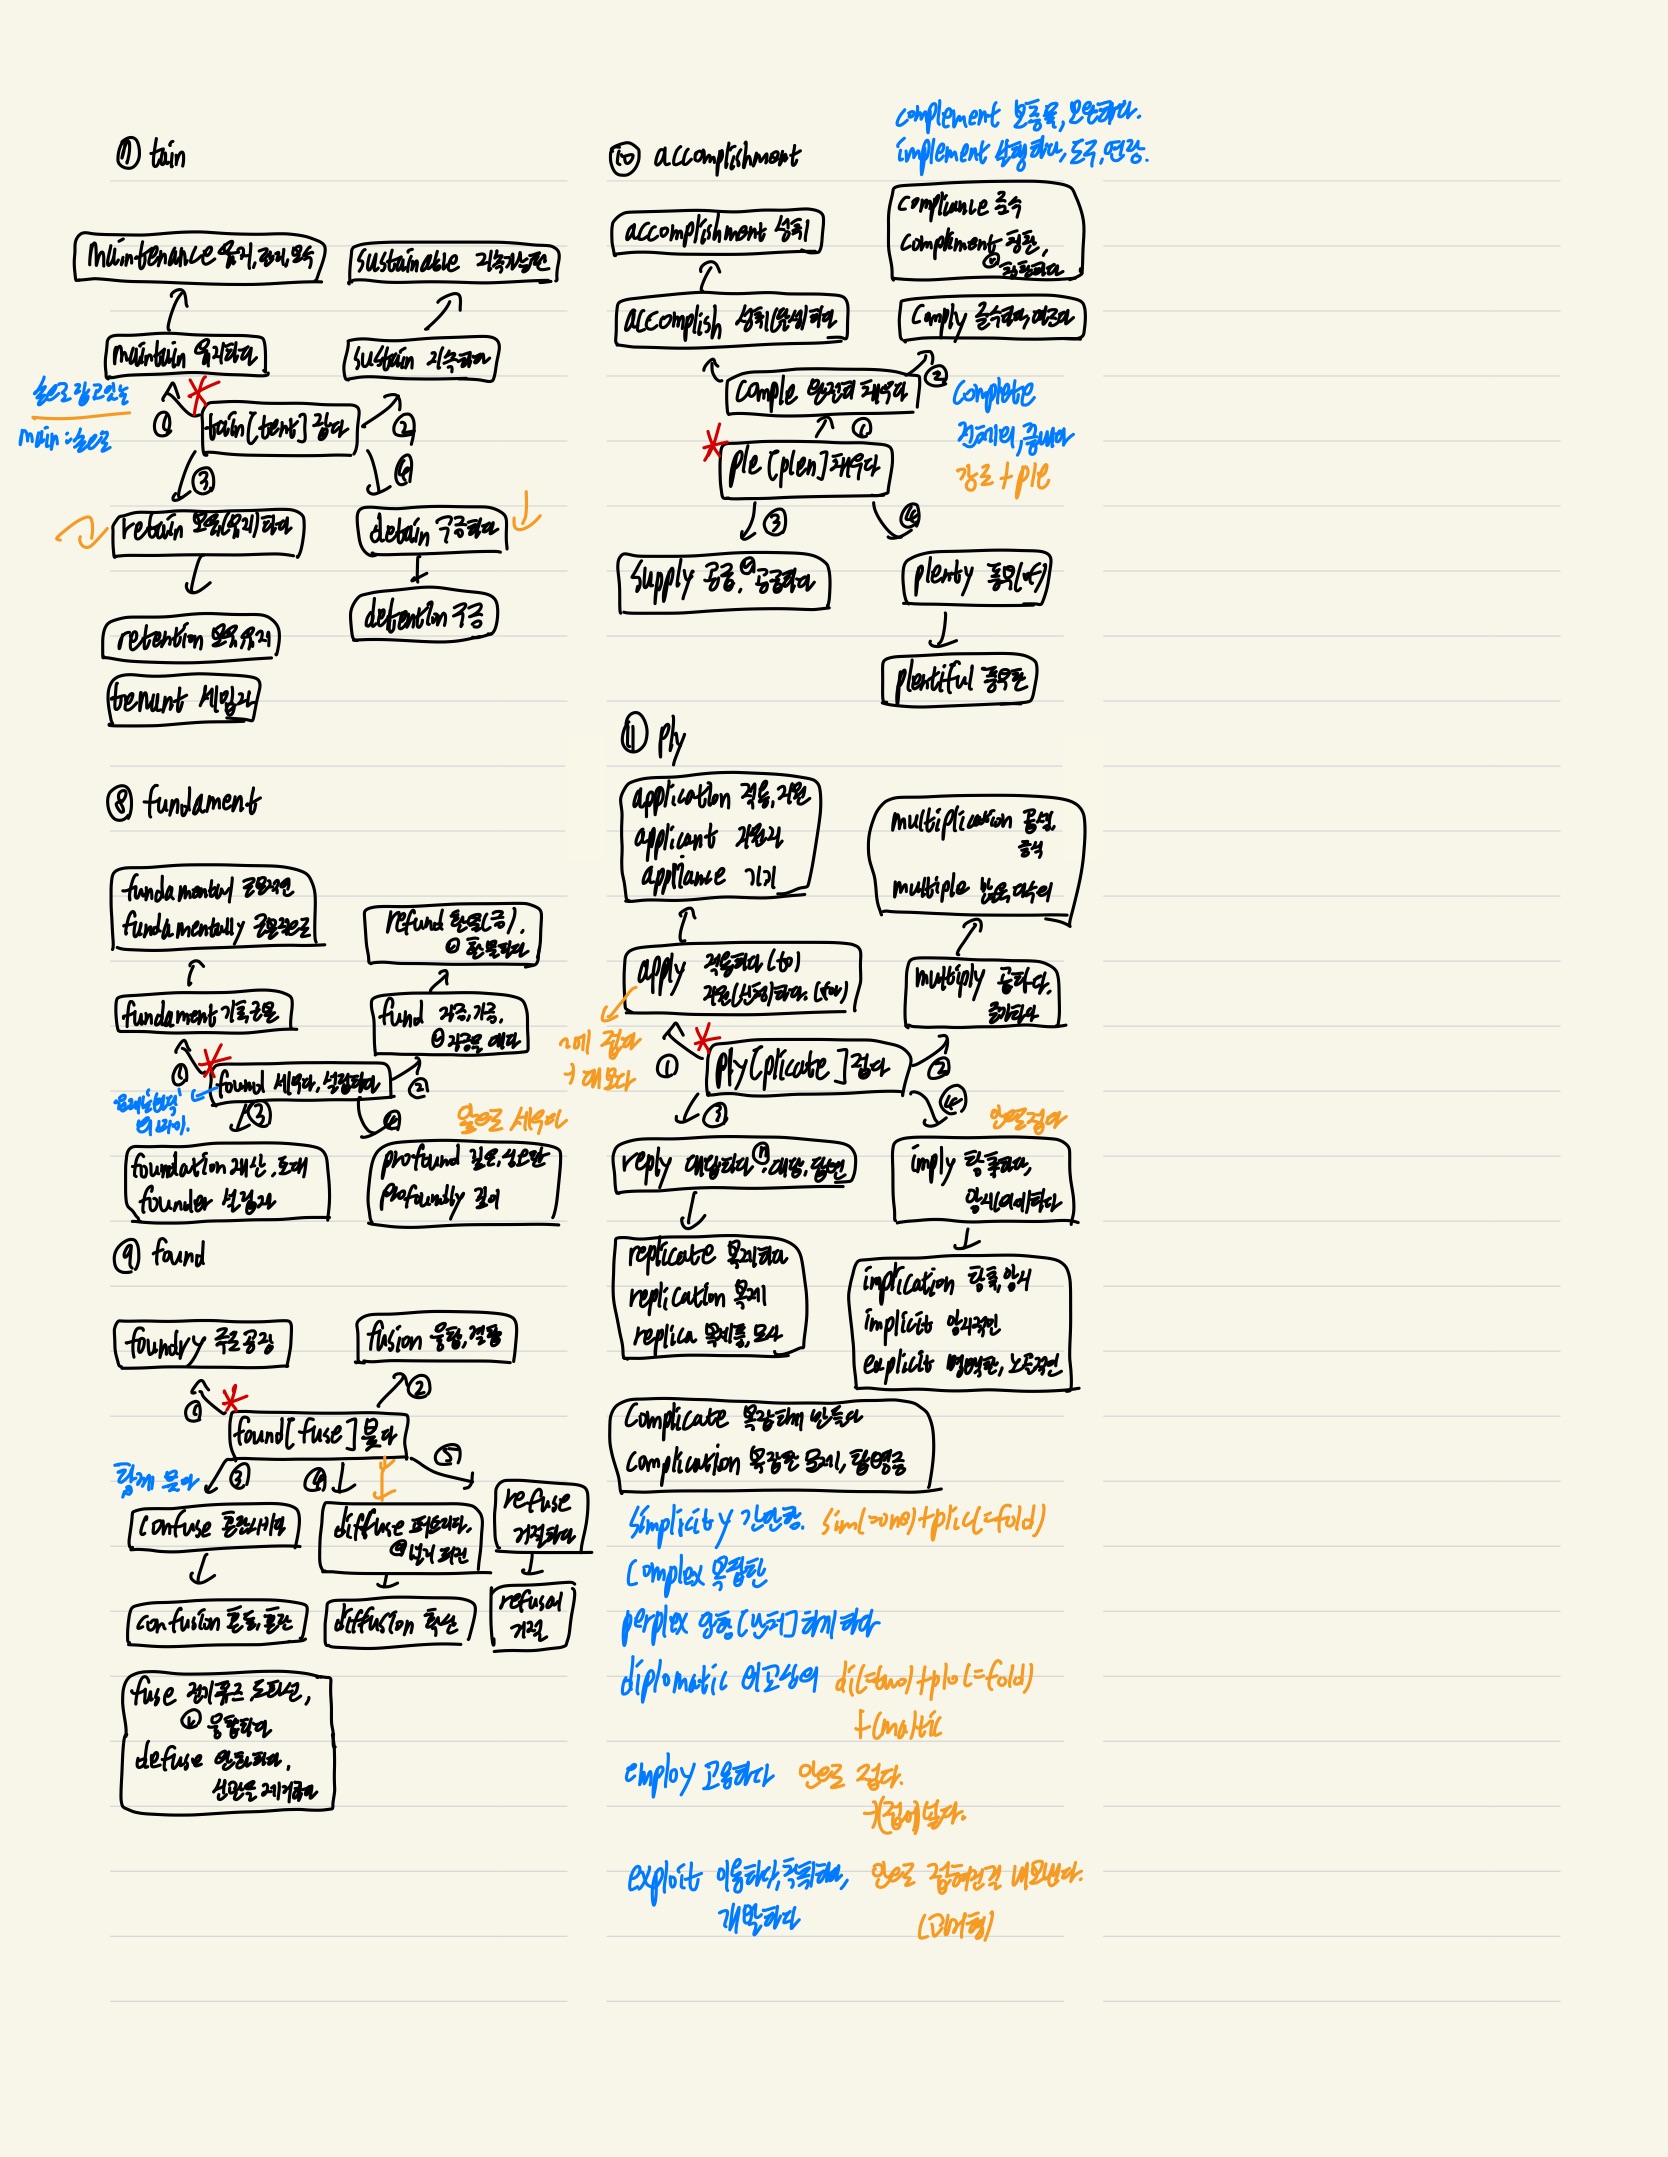 ⑦ tain
maintenance 유지, 관리, 보수
sustainable 지속가능한
maintain 유지하다
sustain 지속하다
손으로 잡고 있는
main : 손으로
① tain[tent] 잡다 ②
③ ④
retain 보유(유지)하다
detain 구금하다
retention 보유, 유지
detention 구금
tenunt 세입자
⑧ fundament
fundamental 근본적인
fundamentally 근본적으로
refund 환불(금),
ⓥ 환불하다
fundament 기초, 근본
fund 자금, 기금,
ⓥ 자금을 대다
① found 세우다, 설립하다 ②
③ ④
앞으로 세우다
foundation 재단, 토대
founder 설립자
profound 깊은, 심오한
profoundly 깊이
⑨ found
foundry 주조공장
fusion 융합, 결합
① ②
found[fuse] 붓다
③ ④ ⑤
함께 붓다
confuse 혼란시키다
diffuse 퍼뜨리다,
ⓐ 널리 퍼진
refuse
거절하다
confusion 혼동, 혼란
diffusion 확산
refusal
거절
fuse 전기퓨즈 도화선,
ⓥ 융합하다
defuse 완화하다,
신관을 제거하다
complement 보충물, 보완하다.
implement 실행하다, 도구, 연장.
⑩ accomplishment
accomplishment 성취
compliance 준수
compliment 칭찬,
ⓥ 칭찬하다
accomplish 성취(완성)하다
comply 준수하다, 따르다
comple 완전히 채우다 ②
complete
전체의, 끝내다
강조 + ple
①
ple [plen] 채우다
③ ④
supply 공급, ⓥ 공급하다
plenty 풍부(한)
plentiful 풍부한
⑪ ply
application 적용, 지원
applicant 지원자
appliance 기기
multiplication 곱셈,
증식
multiple 많은, 다수의
apply 적용하다 (to)
지원(신청)하다. (for)
multiply 곱하다.
증가하다
~에 접다
→ 대보다
① ply[plicate] 접다 ②
③ ④
안으로 접다
reply 대답하다 ⓝ 대답, 답변
imply 함축하다,
암시(의미)하다
replicate 복제하다
replication 복제
replica 복제품, 모사
implication 함축, 암시
implicit 암시적인
explicit 명백한, 노골적인
complicate 복잡하게 만들다
complication 복잡한 문제, 합병증
simplicity 간단함. sim(=one)+plic(=fold)
complex 복잡한
perplex 당황[난처]하게 하다
diplomatic 외교상의 di(=two)+plo(=fold)
+(ma)tic
employ 고용하다 안으로 접다.
→(집어)넣다.
exploit 이용하다, 착취하다, 안으로 접혀진걸 내보낸다.
개발하다